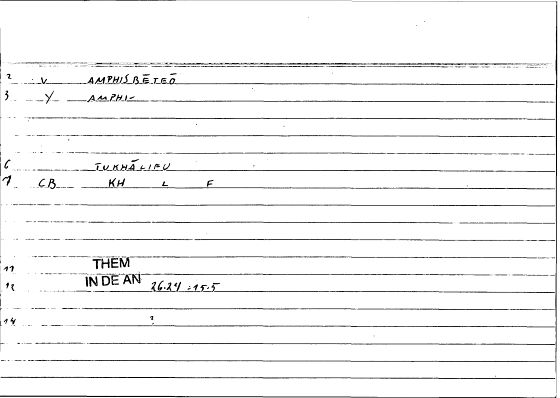 2 V AMPHISBĒTEŌ
3 Y AMPHI-
6 TUKHĀLIFU
7 CB KH L F
11 THEM
12 IN DE AN 26.24 :15.5
14 ?